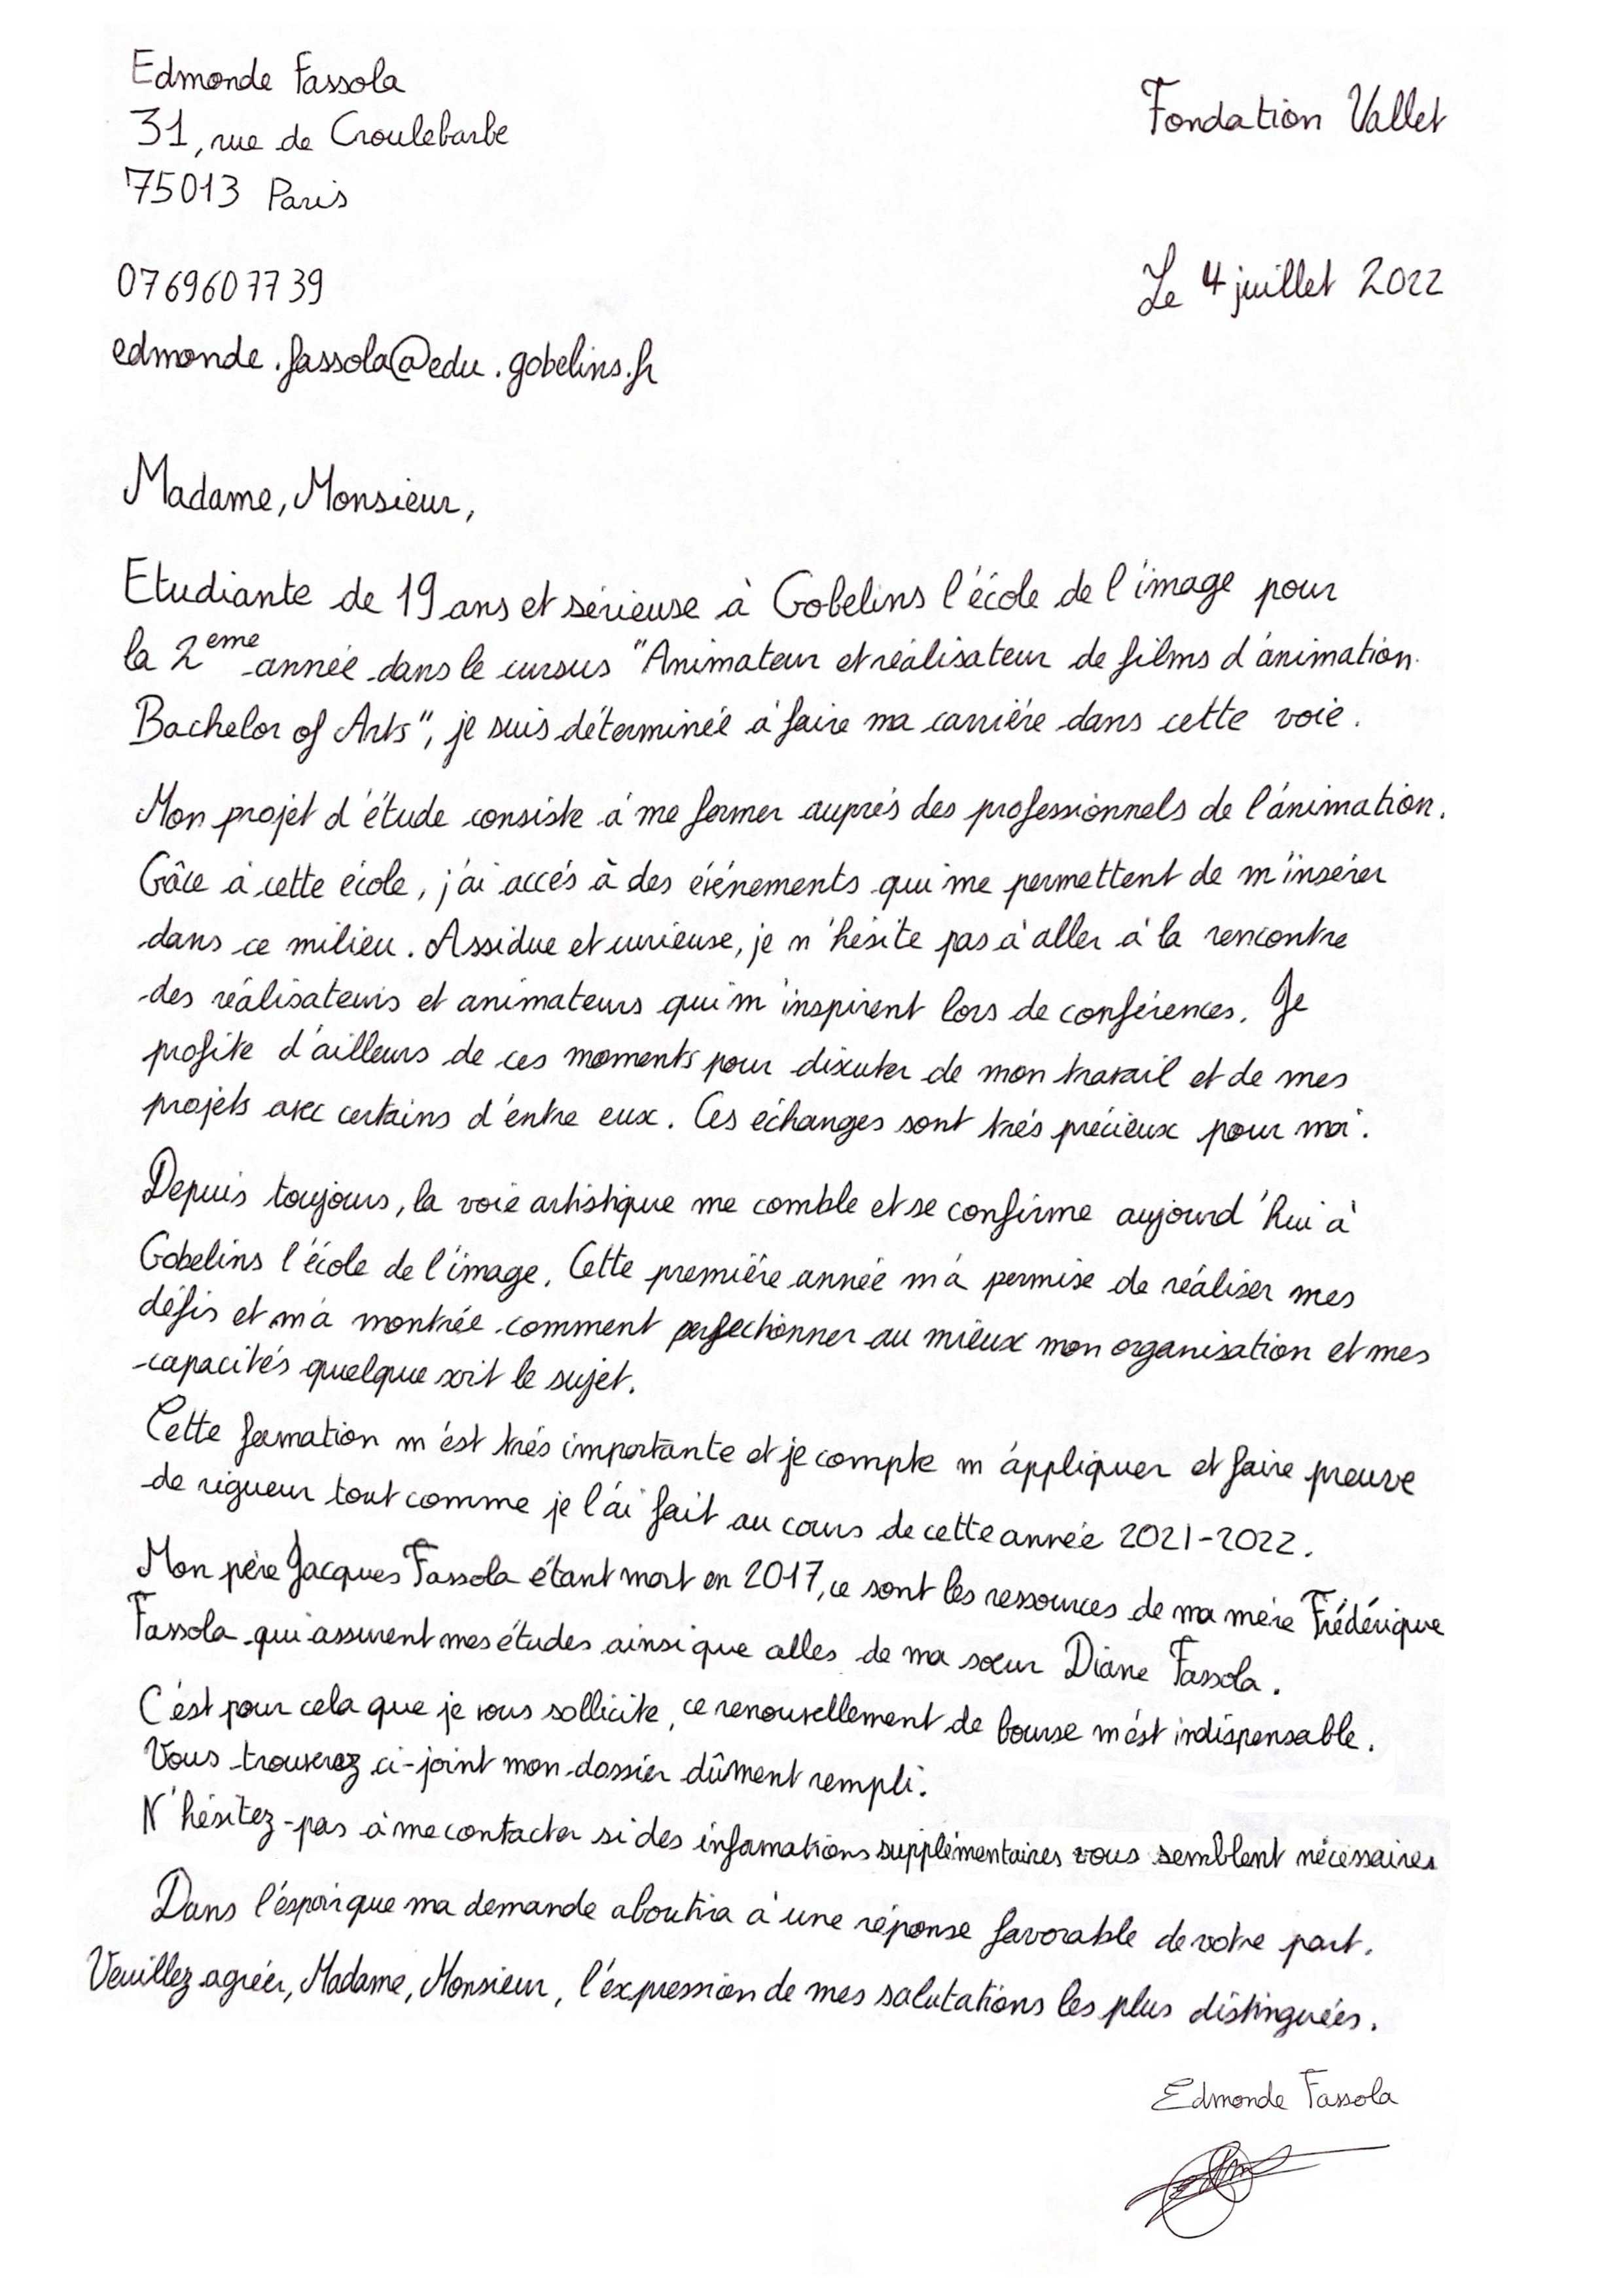 Edmonde Fassola
Fondation Vallet
31, rue de Croulebarbe
75013 Paris
0769607739
Le 4 juillet 2022
edmonde.fassola@edu.gobelins.fr
Madame, Monsieur,
Etudiante de 19 ans et sérieuse à Gobelins l'école de l'image pour
la 2eme année dans le cursus "Animateur et réalisateur de films d'animation
Bachelor of Arts", je suis déterminée à faire ma carrière dans cette voie.
Mon projet d'étude consiste à me former auprès des professionnels de l'animation.
Gâce à cette école, j'ai accès à des événements qui me permettent de m'insérer
dans ce milieu. Assidue et curieuse, je n'hésite pas à aller à la rencontre
des réalisateurs et animateurs qui m'inspirent lors de conférences. Je
profite d'ailleurs de ces moments pour discuter de mon travail et de mes
projets avec certains d'entre eux. Ces échanges sont très précieux pour moi.
Depuis toujours, la voie artistique me comble et se confirme aujourd'hui à
Gobelins l'école de l'image. Cette première année m'a permise de réaliser mes
défis et m'a montrée comment perfectionner au mieux mon organisation et mes
capacités quelque soit le sujet.
Cette formation m'est très importante et je compte m'appliquer et faire preuve
de rigueur tout comme je l'ai fait au cours de cette année 2021-2022.
Mon père Jacques Fassola étant mort en 2017, ce sont les ressources de ma mère Frédérique
Fassola qui assurent mes études ainsi que celles de ma sœur Diane Fassola.
C'est pour cela que je vous sollicite, ce renouvellement de bourse m'est indispensable.
Vous trouverez ci-joint mon dossier dûment rempli.
N'hésitez-pas à me contacter si des informations supplémentaires vous semblent nécessaires
Dans l'espoir que ma demande aboutira à une réponse favorable de votre part.
Veuillez agréer, Madame, Monsieur, l'expression de mes salutations les plus distinguées.
Edmonde Fassola